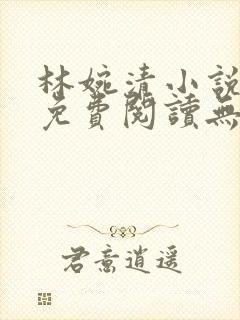 林婉清小說
免費閱讀無
君意逍遥